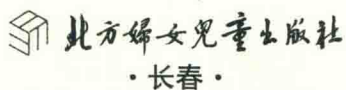 北方婦女児童出版社
·长春·